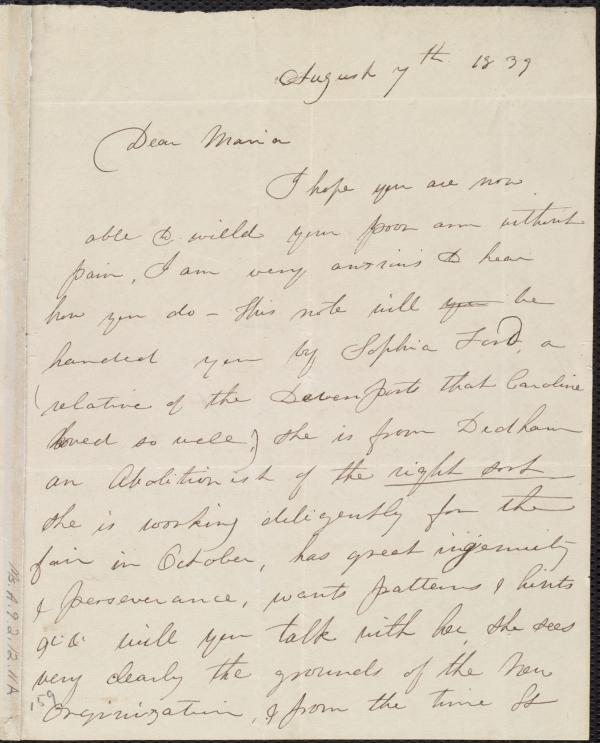 August 7th 1839
Dear Maria
I hope you are now
able to wield your poor arm without
pain, I am very anxious to hear
how you do - this note will you be
handed you by Sophia Ford, a
(relative of the Davenports that Caroline
loved so well,) she is from Dedham
an Abolitionist of the right sort
she is working diligently for the
fair in October, has great ingenuity
& perseverance, wants patterns & hints
will you talk with her, she sees
very clearly the grounds of the New
Orginization, & from the time St
Ms.A.9.2.12.11A
p.59